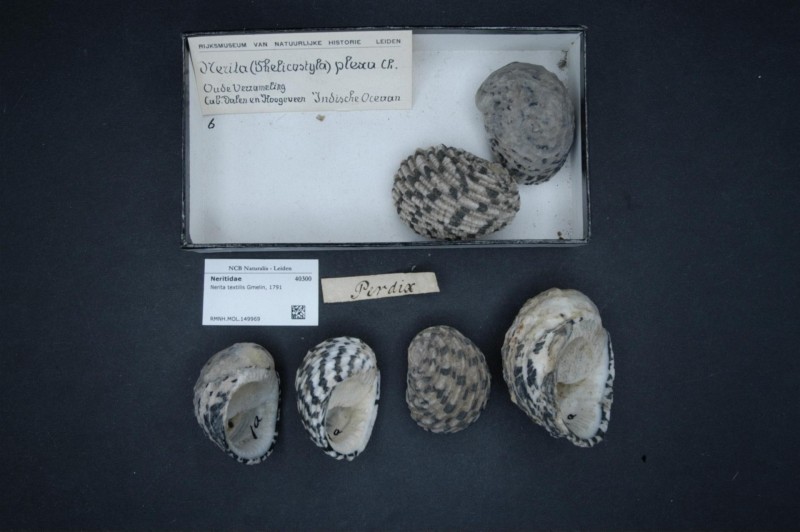 RIJKSMUSEUM VAN NATUURLIJKE HISTORIE LEIDEN
Nerita (Thelicostyla) plexa Ch.
Oude Verzameling
Cab. Dalen en Hoogeveen Indische Oceaan
6
NCB Naturalis - Leiden
Neritidae 40300
Nerita textilis Gmelin, 1791
RMNH.MOL.149969
Perdix
a
a